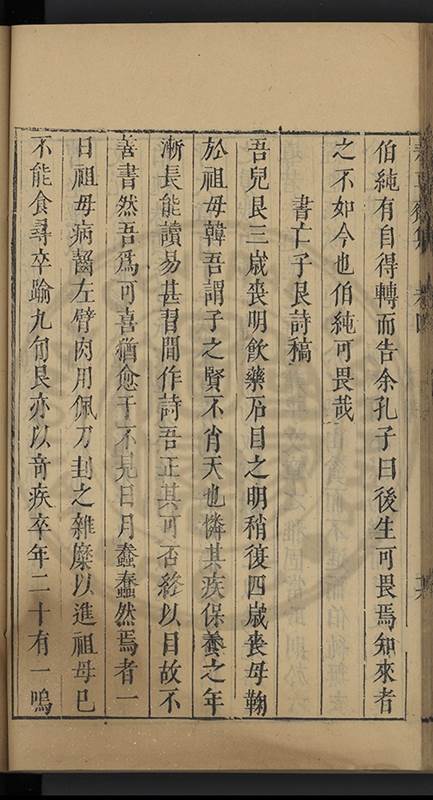 伯純有自得轉而告余孔子曰後生可畏焉知來者
之不如今也伯純可畏哉
書亡子艮詩稿
吾兒艮三歲喪明飲藥石目之明稍復四歲喪母鞠
於祖母韓吾謂子之賢不肖天也憐其疾保養之年
漸長能讀易甚習間作詩吾正其可否終以目故不
善書然吾爲可喜猶愈于不見日月蠢蠢然焉者一
日祖母病齧左臂肉用佩刀刲之雜糜以進祖母已
不能食尋卒踰九旬艮亦以奇疾卒年二十有一嗚